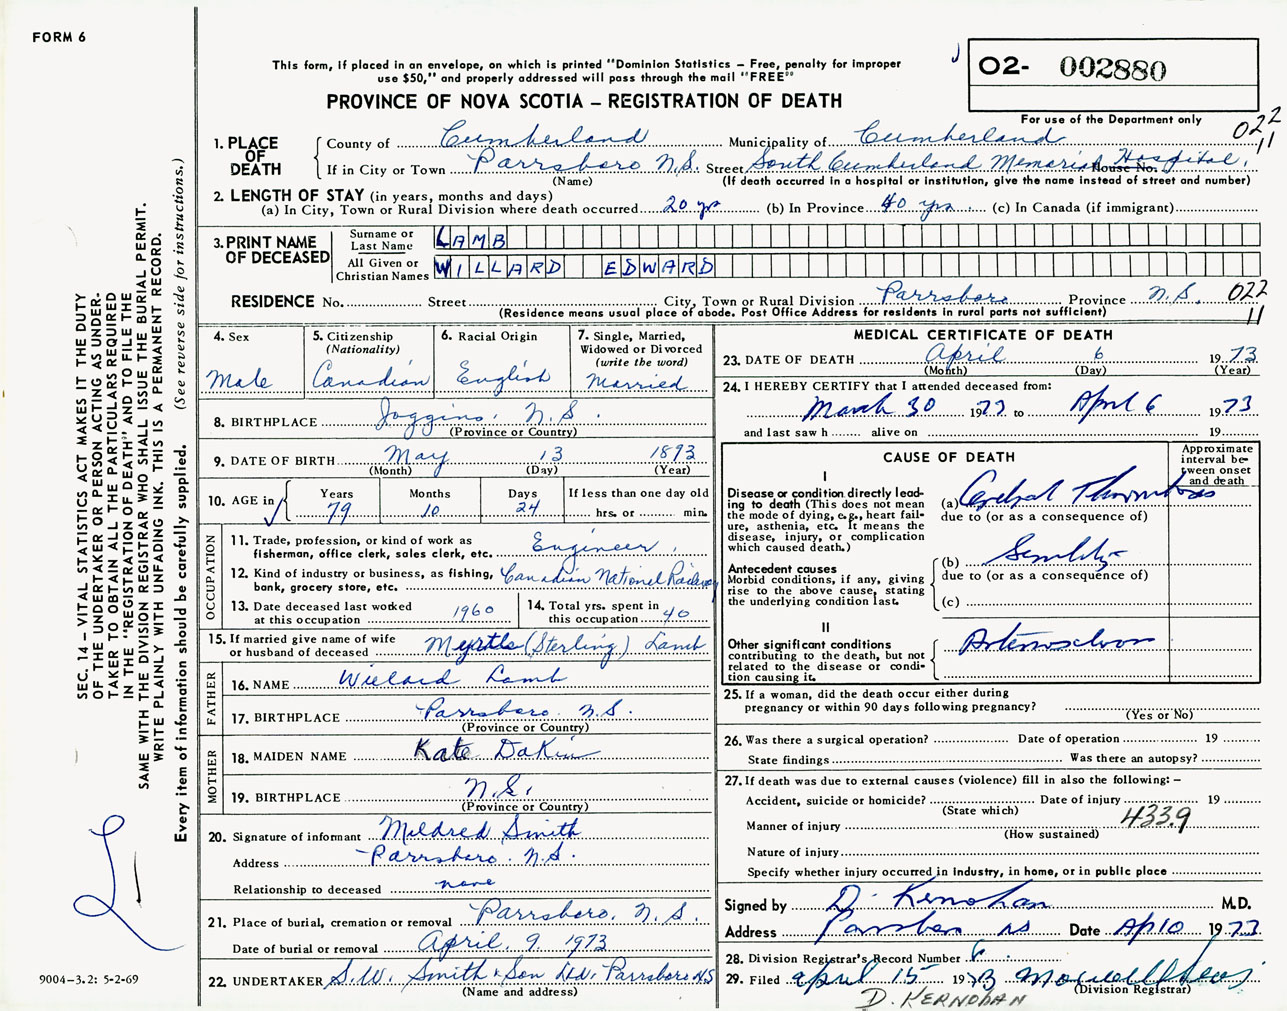 FORM 6
This form, if placed in an envelope, on which is printed "Dominion Statistics – Free, penalty for improper
use $50," and properly addressed will pass through the mail "FREE"
PROVINCE OF NOVA SCOTIA – REGISTRATION OF DEATH
O2- 002880
For use of the Department only
022
11
1. PLACE OF DEATH
County of Cumberland Municipality of Cumberland
If in City or Town Parrsboro N.S. Street South Cumberland Memorial Hospital. House No.
(Name) (If death occurred in a hospital or institution, give the name instead of street and number)
2. LENGTH OF STAY (in years, months and days)
(a) In City, Town or Rural Division where death occurred 20 yrs (b) In Province 40 yrs. (c) In Canada (if immigrant)
3. PRINT NAME OF DECEASED
Surname or Last Name LAMB
All Given or Christian Names WILLARD EDWARD
RESIDENCE No. Street City, Town or Rural Division Parrsboro Province N.S. 022
(Residence means usual place of abode. Post Office Address for residents in rural parts not sufficient) 11
4. Sex
Male
5. Citizenship
(Nationality)
Canadian
6. Racial Origin
English
7. Single, Married,
Widowed or Divorced
(write the word)
Married
8. BIRTHPLACE Joggins, N.S.
(Province or Country)
9. DATE OF BIRTH May 13 1893
(Month) (Day) (Year)
10. AGE in
Years 79
Months 10
Days 24
If less than one day old
hrs. or min.
OCCUPATION
11. Trade, profession, or kind of work as
fisherman, office clerk, sales clerk, etc. Engineer
12. Kind of industry or business, as fishing,
bank, grocery store, etc. Canadian National Railway
13. Date deceased last worked
at this occupation 1960
14. Total yrs. spent in
this occupation 40
15. If married give name of wife
or husband of deceased Myrtle (Sterling) Lamb
FATHER
16. NAME Willard Lamb
17. BIRTHPLACE Parrsboro N.S.
(Province or Country)
MOTHER
18. MAIDEN NAME Kate Dakin
19. BIRTHPLACE N.S.
(Province or Country)
20. Signature of informant Mildred Smith
Address Parrsboro. N.S.
Relationship to deceased none
21. Place of burial, cremation or removal Parrsboro, N.S.
Date of burial or removal April. 9. 1973
22. UNDERTAKER S.W. Smith & Son Ltd. Parrsboro N.S
(Name and address)
MEDICAL CERTIFICATE OF DEATH
23. DATE OF DEATH April 6 1973
(Month) (Day) (Year)
24. I HEREBY CERTIFY that I attended deceased from:
March 30 1973 to April 6 1973
and last saw h alive on 19
CAUSE OF DEATH
Approximate
interval be-
tween onset
and death
I
Disease or condition directly lead-
ing to death (This does not mean
the mode of dying, e.g., heart fail-
ure, asthenia, etc. It means the
disease, injury, or complication
which caused death.)
(a) Cerebral Thrombosis
due to (or as a consequence of)
Antecedent causes
Morbid conditions, if any, giving
rise to the above cause, stating
the underlying condition last.
(b) Senility
due to (or as a consequence of)
(c)
II
Other significant conditions
contributing to the death, but not
related to the disease or condi-
tion causing it.
25. If a woman, did the death occur either during
pregnancy or within 90 days following pregnancy?
(Yes or No)
26. Was there a surgical operation? Date of operation 19
State findings Was there an autopsy?
27. If death was due to external causes (violence) fill in also the following: –
Accident, suicide or homicide? Date of injury 19
(State which)
Manner of injury 433.9
(How sustained)
Nature of injury
Specify whether injury occurred in industry, in home, or in public place
Signed by D. Kernohan M.D.
Address Parrsboro NS Date Ap 10 1973
28. Division Registrar's Record Number 6
29. Filed April 15 1973
(Division Registrar)
D. KERNOHAN
SEC. 14 – VITAL STATISTICS ACT MAKES IT THE DUTY
OF THE UNDERTAKER OR PERSON ACTING AS UNDER-
TAKER TO OBTAIN ALL THE PARTICULARS REQUIRED
IN THE "REGISTRATION OF DEATH" AND TO FILE THE
SAME WITH THE DIVISION REGISTRAR WHO SHALL ISSUE THE BURIAL PERMIT.
WRITE PLAINLY WITH UNFADING INK. THIS IS A PERMANENT RECORD.
Every item of information should be carefully supplied. (See reverse side for instructions.)
L
9004–3.2: 5-2-69